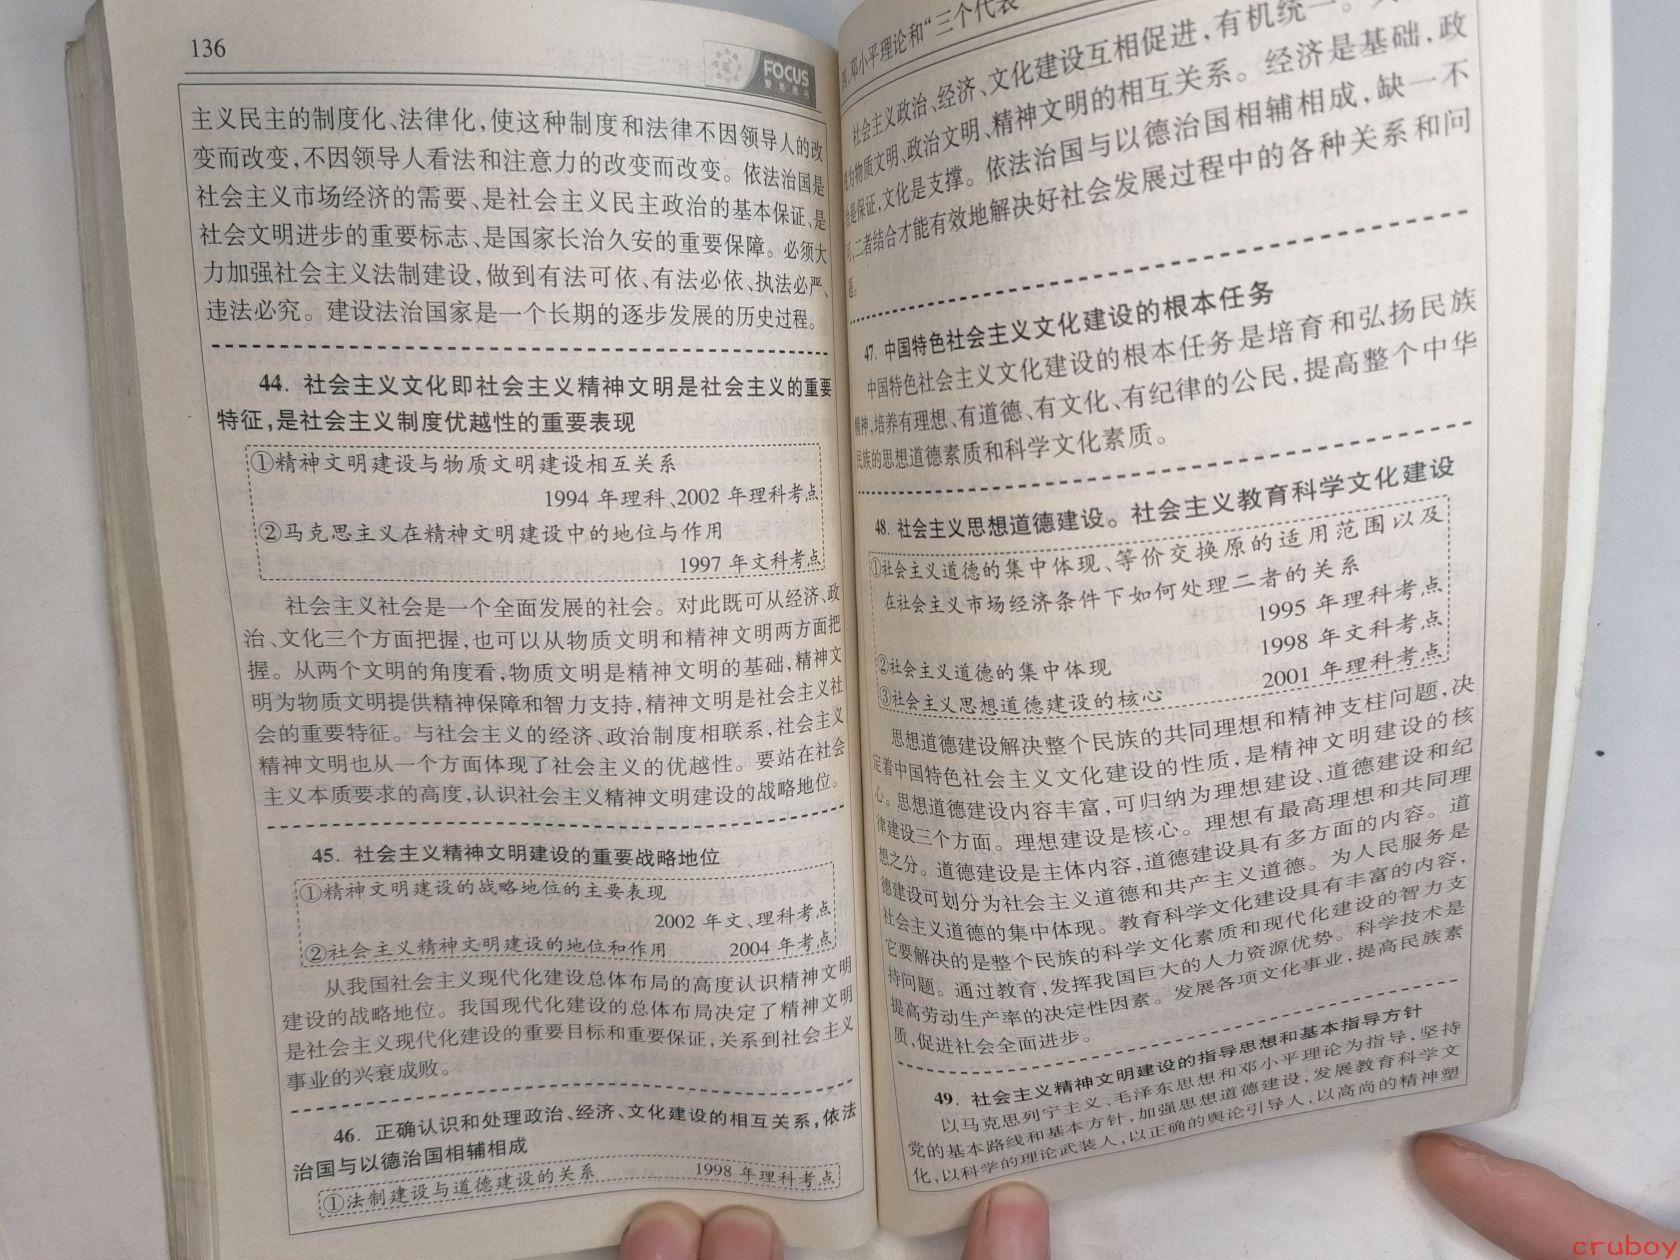 136
FOCUS
主义民主的制度化、法律化,使这种制度和法律不因领导人的改
变而改变,不因领导人看法和注意力的改变而改变。依法治国是
社会主义市场经济的需要、是社会主义民主政治的基本保证、是
社会文明进步的重要标志、是国家长治久安的重要保障。必须大
力加强社会主义法制建设,做到有法可依、有法必依、执法必严、
违法必究。建设法治国家是一个长期的逐步发展的历史过程。
44. 社会主义文化即社会主义精神文明是社会主义的重要
特征,是社会主义制度优越性的重要表现
①精神文明建设与物质文明建设相互关系
1994 年理科、2002 年理科考点
②马克思主义在精神文明建设中的地位与作用
1997 年文科考点
社会主义社会是一个全面发展的社会。对此既可从经济、政
治、文化三个方面把握,也可以从物质文明和精神文明两方面把
握。从两个文明的角度看,物质文明是精神文明的基础,精神文
明为物质文明提供精神保障和智力支持,精神文明是社会主义社
会的重要特征。与社会主义的经济、政治制度相联系,社会主义
精神文明也从一个方面体现了社会主义的优越性。要站在社会
主义本质要求的高度,认识社会主义精神文明建设的战略地位。
45. 社会主义精神文明建设的重要战略地位
①精神文明建设的战略地位的主要表现
2002 年文、理科考点
②社会主义精神文明建设的地位和作用 2004 年考点
从我国社会主义现代化建设总体布局的高度认识精神文明
建设的战略地位。我国现代化建设的总体布局决定了精神文明
是社会主义现代化建设的重要目标和重要保证,关系到社会主义
事业的兴衰成败。
46. 正确认识和处理政治、经济、文化建设的相互关系,依法
治国与以德治国相辅相成
①法制建设与道德建设的关系 1998 年理科考点
四、邓小平理论和“三个代表
社会主义政治、经济、文化建设互相促进,有机统一。
为物质文明、政治文明、精神文明的相互关系。经济是基础,政
治是保证,文化是支撑。依法治国与以德治国相辅相成,缺一不
可,二者结合才能有效地解决好社会发展过程中的各种关系和问
题。
47. 中国特色社会主义文化建设的根本任务
中国特色社会主义文化建设的根本任务是培育和弘扬民族
精神,培养有理想、有道德、有文化、有纪律的公民,提高整个中华
民族的思想道德素质和科学文化素质。
48. 社会主义思想道德建设。社会主义教育科学文化建设
①社会主义道德的集中体现、等价交换原的适用范围以及
在社会主义市场经济条件下如何处理二者的关系
1995 年理科考点
②社会主义道德的集中体现 1998 年文科考点
③社会主义思想道德建设的核心 2001 年理科考点
思想道德建设解决整个民族的共同理想和精神支柱问题,决
定着中国特色社会主义文化建设的性质,是精神文明建设的核
心。思想道德建设内容丰富,可归纳为理想建设、道德建设和纪
律建设三个方面。理想建设是核心。理想有最高理想和共同理
想之分。道德建设是主体内容,道德建设具有多方面的内容。道
德建设可划分为社会主义道德和共产主义道德。为人民服务是
社会主义道德的集中体现。教育科学文化建设具有丰富的内容,
它要解决的是整个民族的科学文化素质和现代化建设的智力支
持问题。通过教育,发挥我国巨大的人力资源优势。科学技术是
提高劳动生产率的决定性因素。发展各项文化事业,提高民族素
质,促进社会全面进步。
49. 社会主义精神文明建设的指导思想和基本指导方针
以马克思列宁主义、毛泽东思想和邓小平理论为指导,坚持
党的基本路线和基本方针,加强思想道德建设,发展教育科学文
化,以科学的理论武装人,以正确的舆论引导人,以高尚的精神塑
cruboy